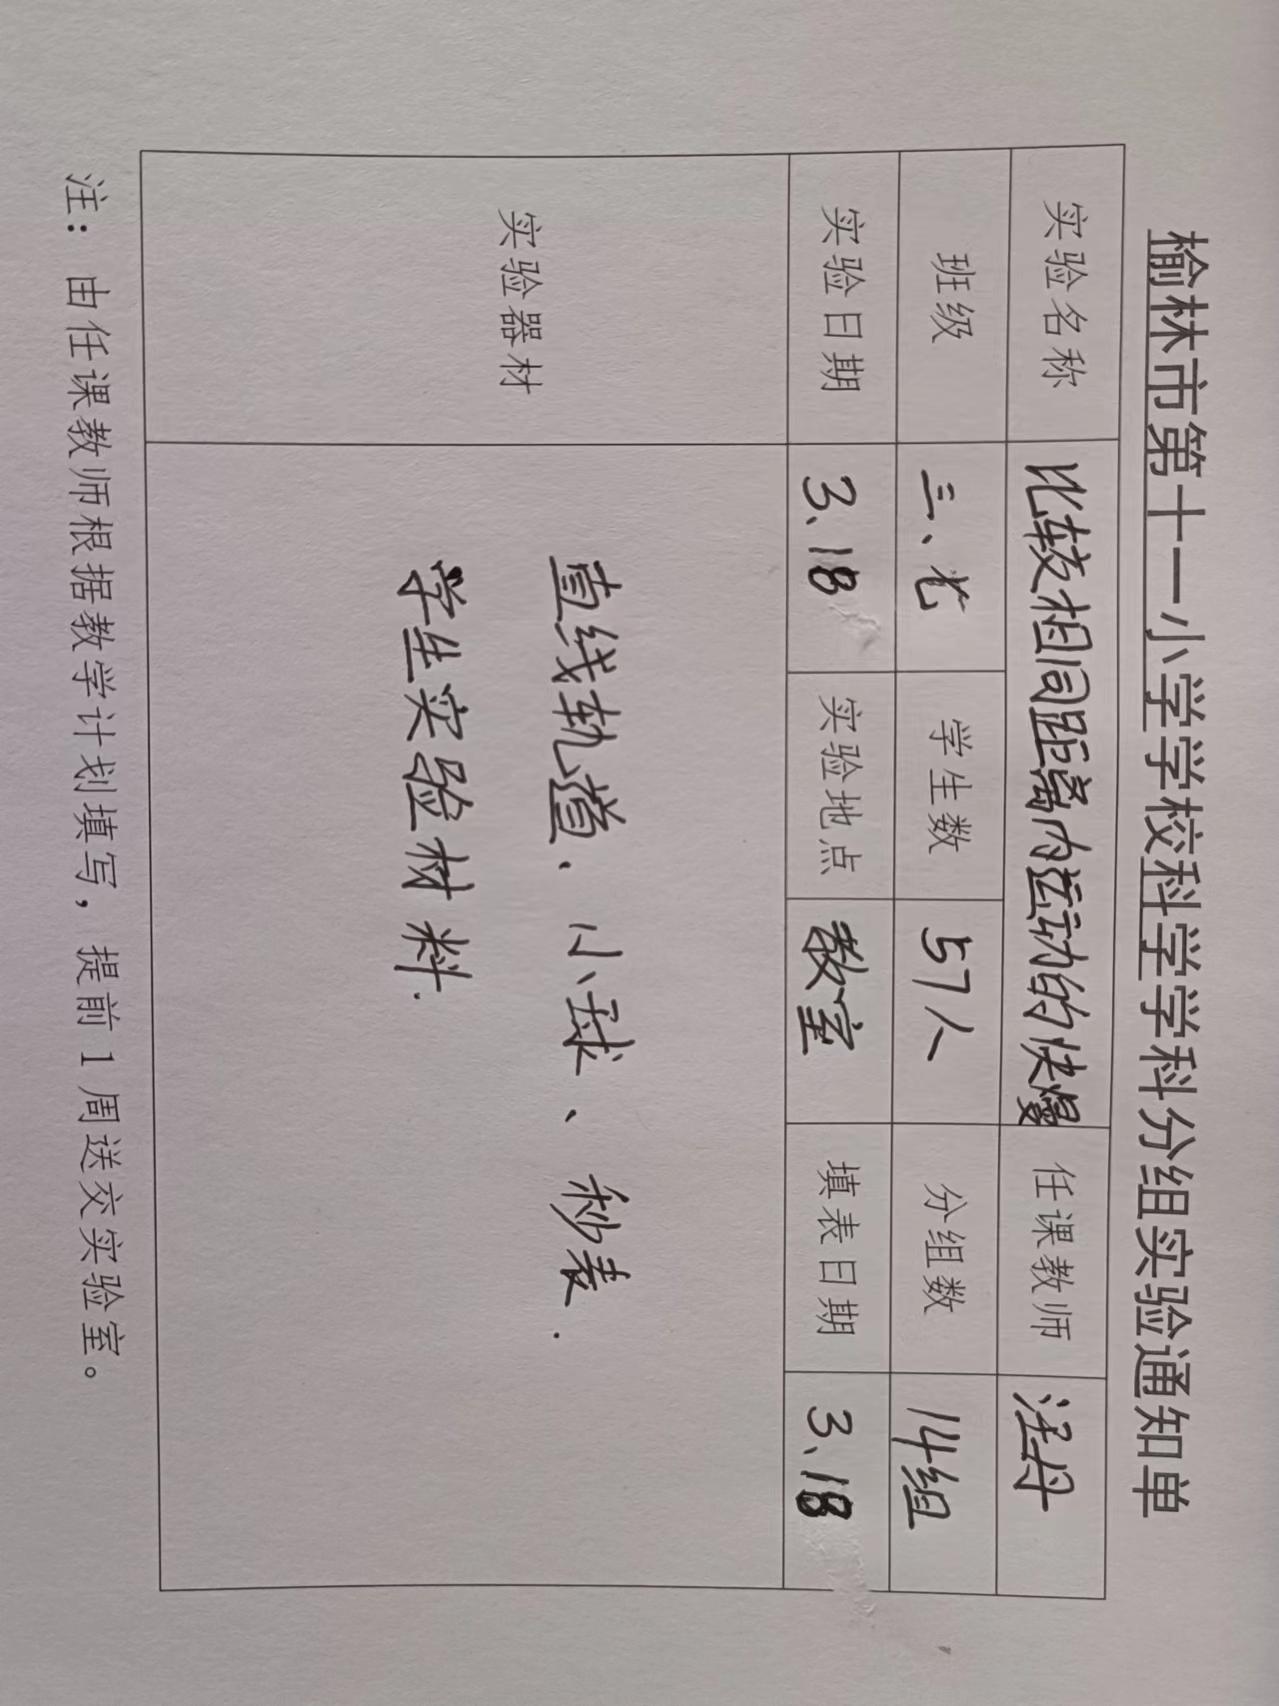 榆林市第十一小学学校科学学科分组实验通知单
实验名称 比较相同距离内运动的快慢 任课教师 汪丹
班级 三、七 学生数 57人 分组数 14组
实验日期 3、18 实验地点 教室 填表日期 3、18
实验器材
直线轨道、小球、秒表.
学生实验材料.
注：由任课教师根据教学计划填写，提前1周送交实验室。